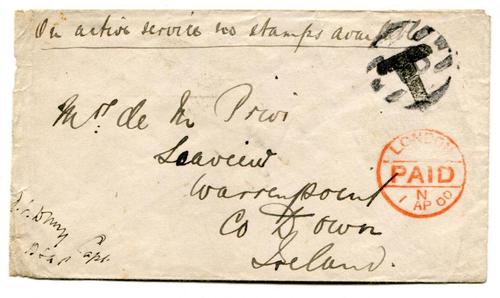 On active service no stamps available
T
Mrs de M
Seaview
Warrenpoint
Co Down
Ireland.
LONDON
PAID
N
1 AP 00
Capt